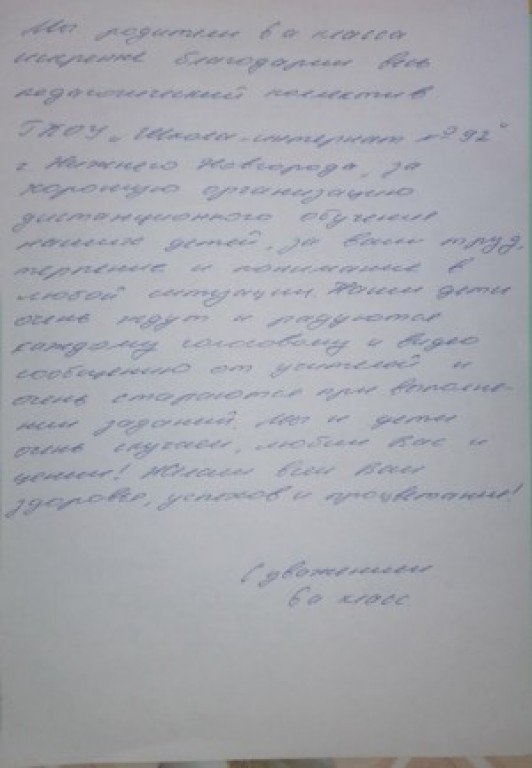 Мы родители 6 а класса
искренне благодарим весь
педагогический коллектив
ГКОУ „Школа-интернат №92"
г. Нижнего Новгорода, за
хорошую организацию
дистанционного обучения
наших детей, за ваш труд,
терпение и понимание в
любой ситуации. Наши дети
очень ждут и радуются
каждому голосовому и видео
сообщению от учителей и
очень стараются при выполне-
нии заданий. Мы и дети
очень скучаем, любим Вас и
ценим! Желаем всем Вам
здоровье, успехов и процветания!
С уважением
6 а класс.